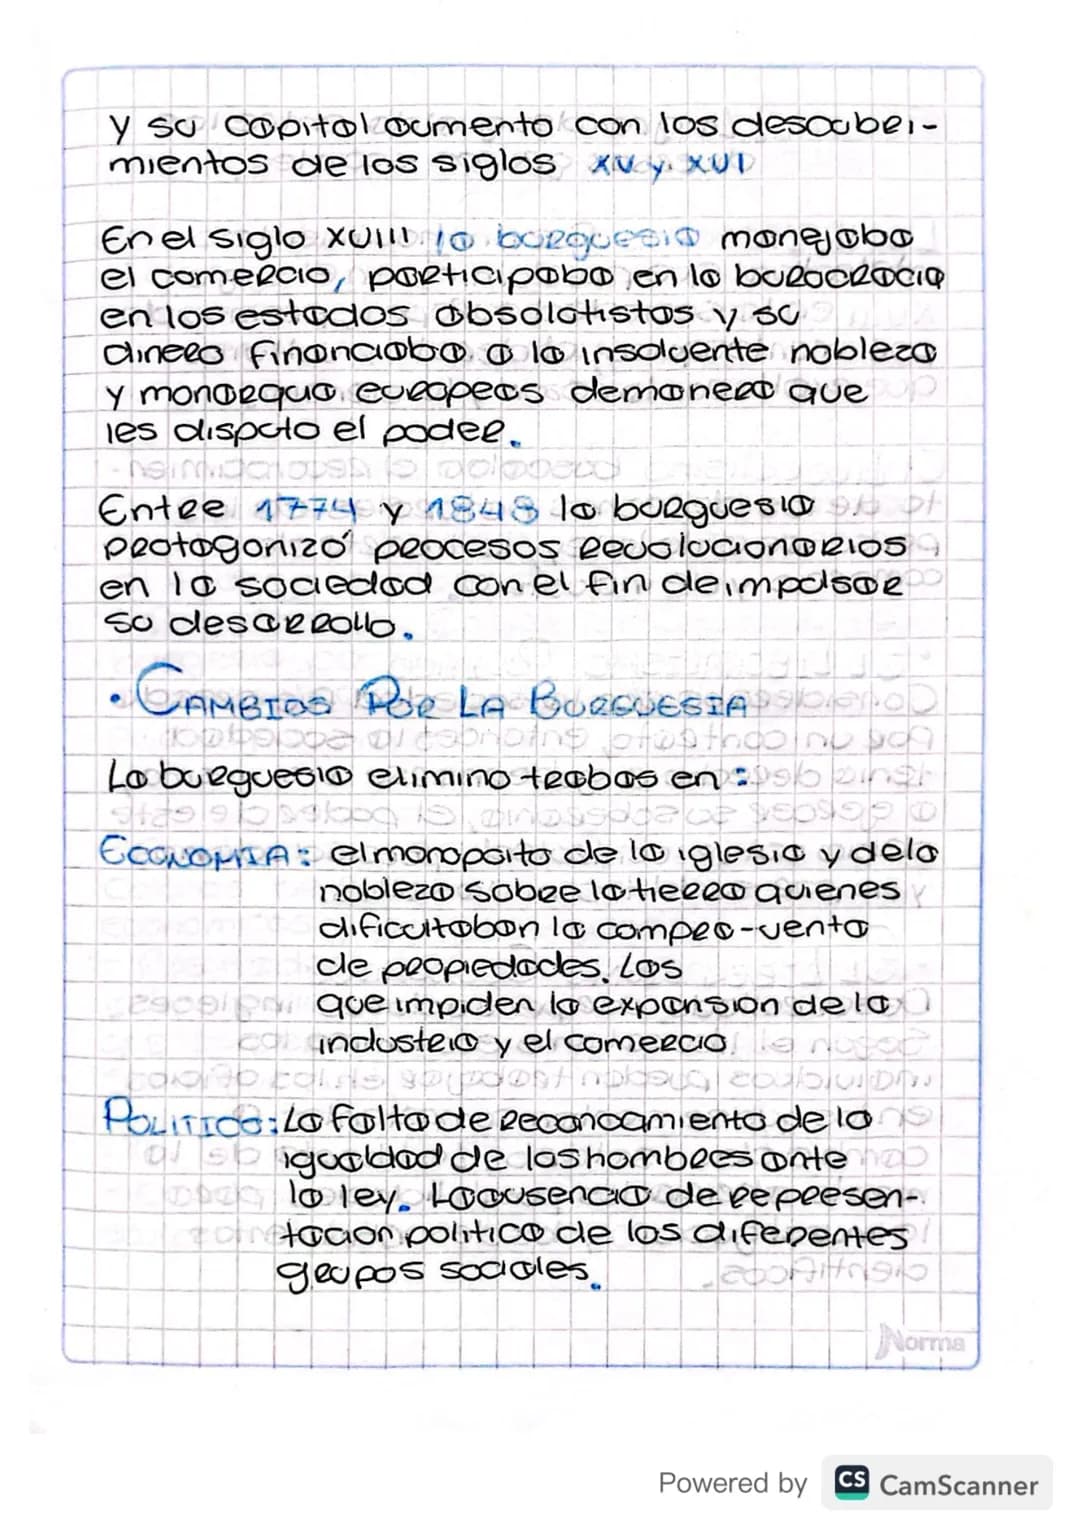 y su capital aumento con los descubri-
mientos de los siglos XV y XVI
En el siglo XVIII la burguesia manejaba
el comercio, participaba en la burocracia
en los estados absolutistas y su
dinero financiaba a la insolvente nobleza
y monarquia europeas demanera que
les disputo el poder.
Entre 1774 y 1848 la burguesia
protagonizó procesos revolucionarios
en la sociedad con el fin de impulsar
su desarrollo.
• CAMBIOS POR LA BURGUESIA
La burguesia elimino trabas en :
ECONOMIA: el monopolito de la iglesia y dela
nobleza sobre la tierra quienes
dificultaban la compra-venta
de propiedades. Los
que impiden la expansion de la
industria y el comercio.
POLITICO: La falta de reconocimiento de la
igualdad de los hombres ante
la ley. La ausencia de represen-
tacion politica de los diferentes
grupos sociales.
Norma
Powered by CS CamScanner